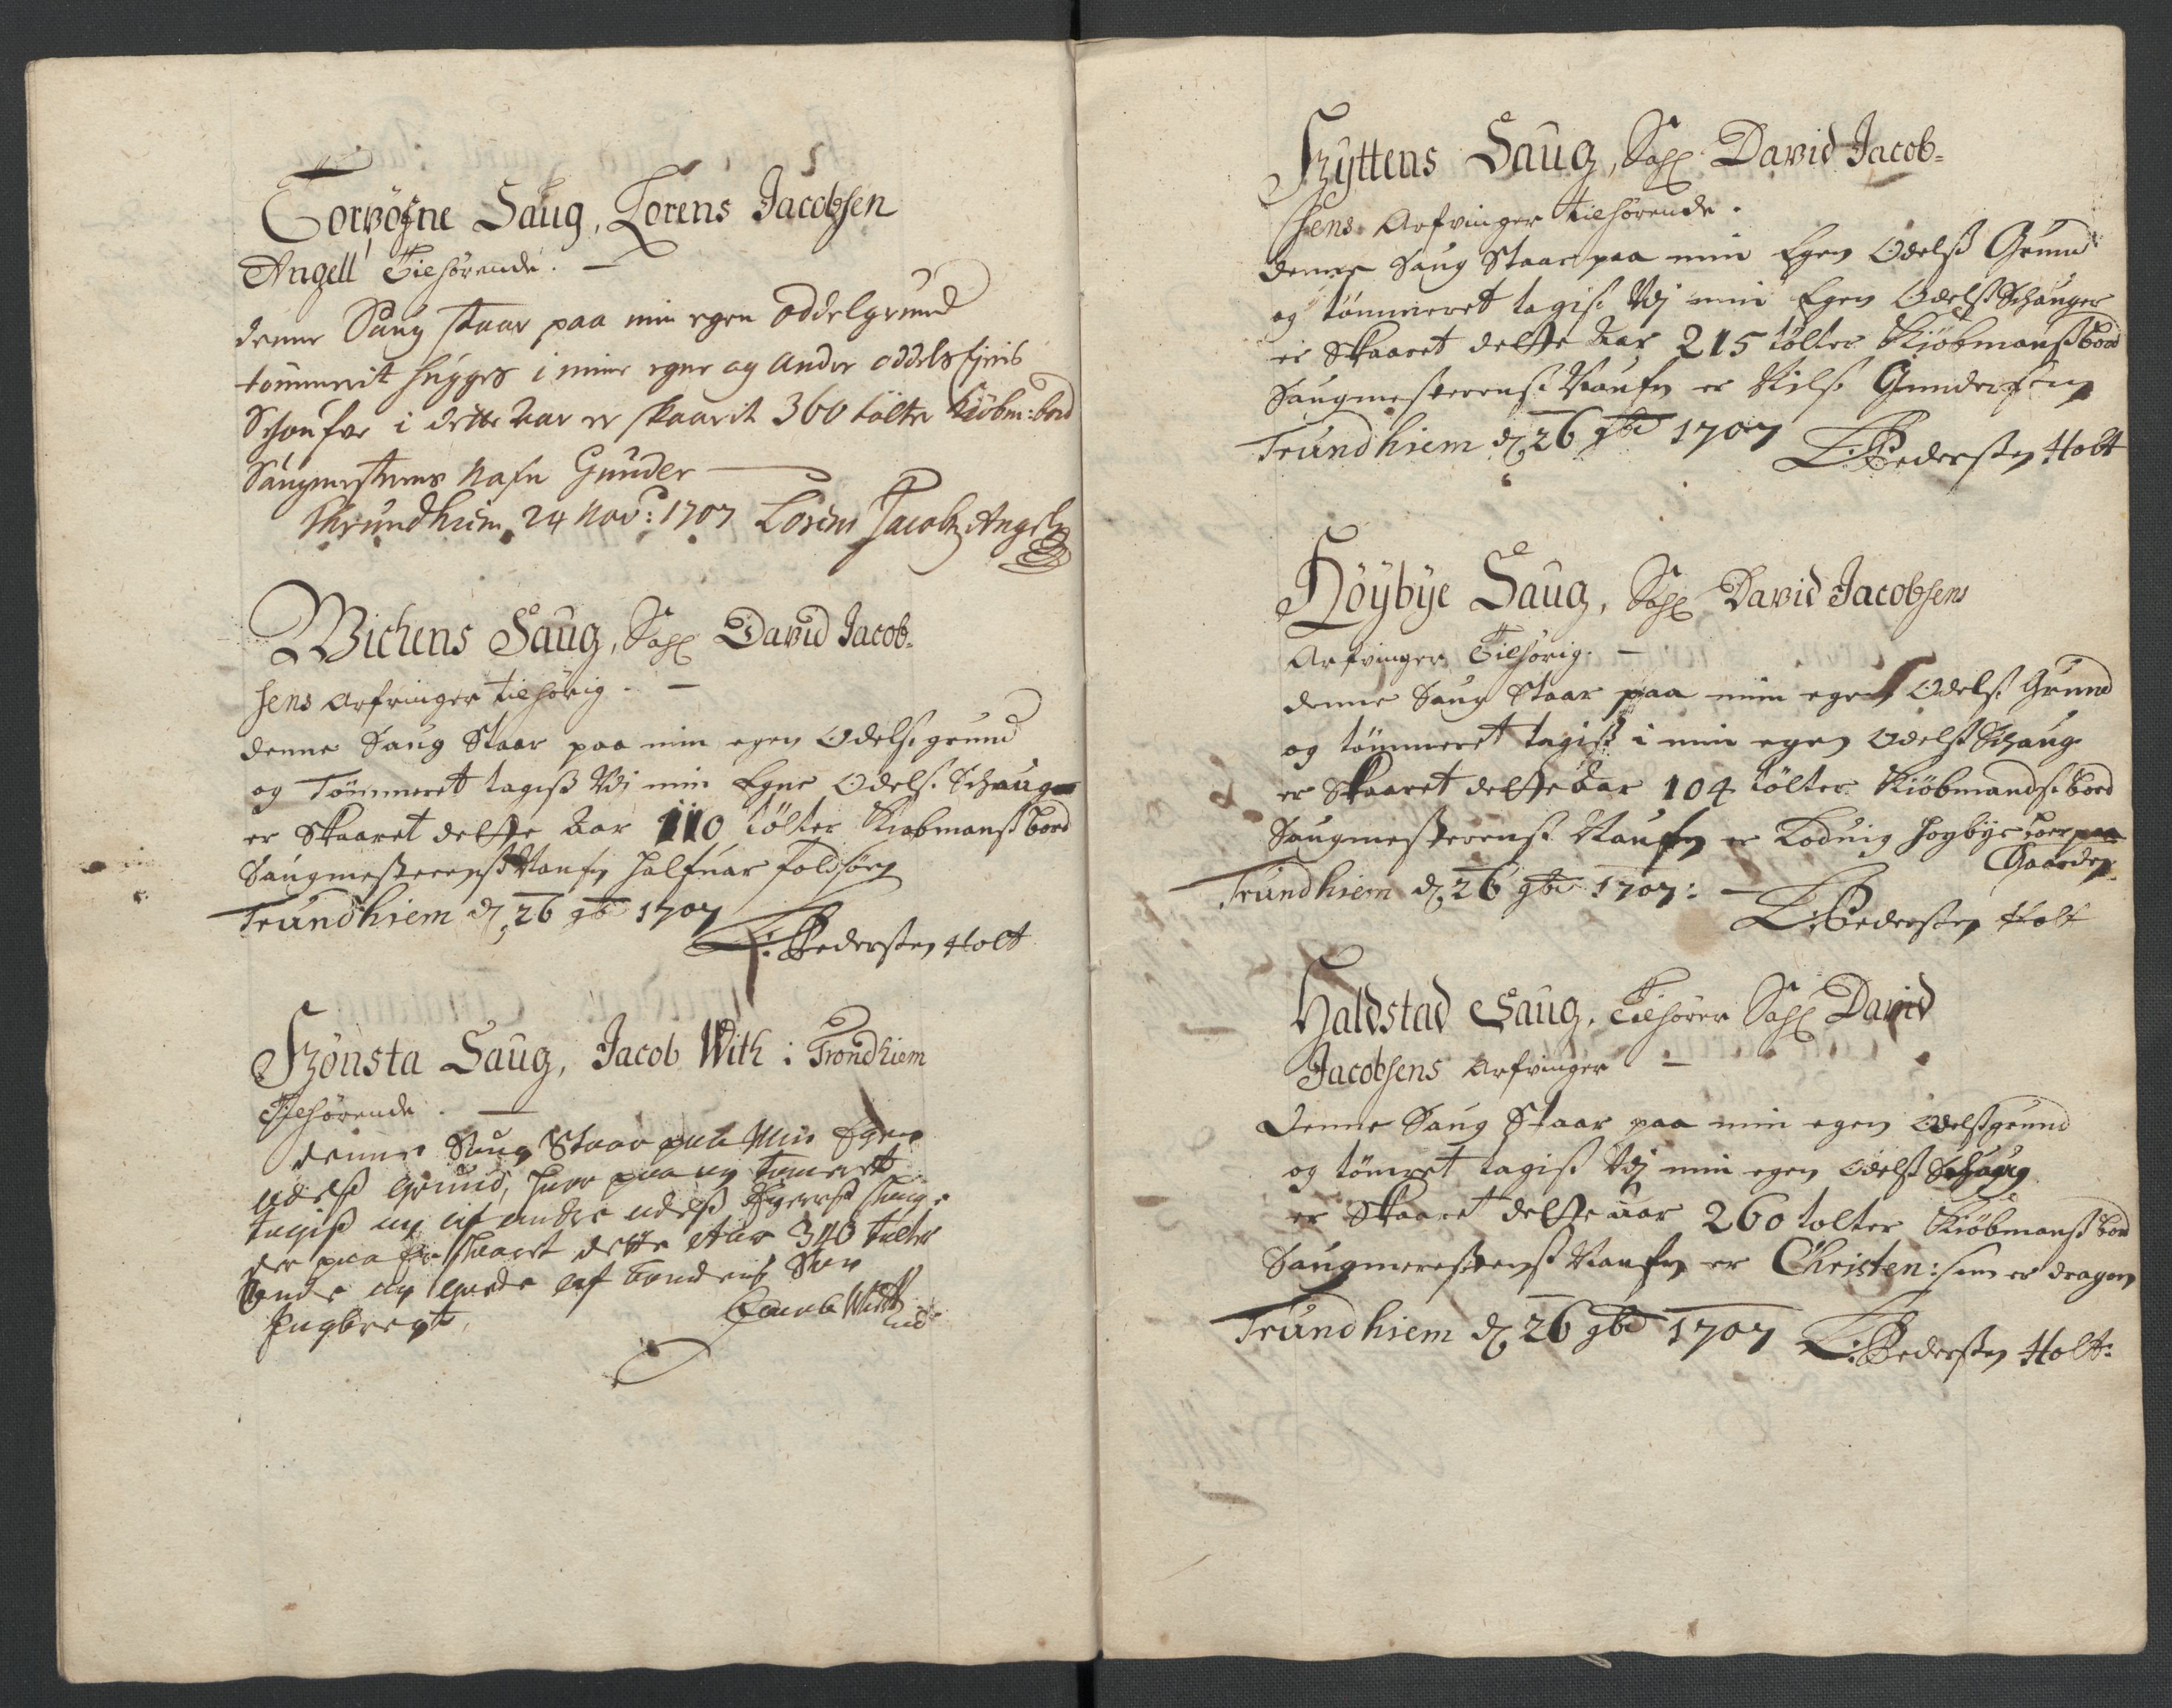 Torvøfne Saug, Lorens Jacobsen
Angell Tilhørende. —
denne Saug staar paa min egen oddelgrund
tømmerit hugges i mine egne og andre oddels Ejeris
Schoufve i dette aar er skaarit 360 tølter Kiøbm: bord
Saugmesterens Nafn Gunder —
Thrundhiem 24 Nov: 1707 Lorens Jacobs Angell
Wichens Saug, Sahl David Jacob-
sens Arfvinger tilhørig. —
denne Saug Staar paa min egen Odelsgrund
og Tømmeret tagiss Udj min Egne Odels Schauge
er Skaaret dette Aar 110 tølter Kiøbmanss bord
Saugmesterenss Naufn Halfuar
Trundhiem d 26 9br 1707
L: Pedersen Holt
Frønsta Saug, Jacob With i Trondhiem
Tilhørende. —
denne Saug Staar paa Min Egen
odelss Grund, huor paa og tømeret
tagiss og af andre odelss Eyerss skoug.
der paa er skaaret dette Aar 340 tolter
onde og goede af bondens Søn
Ingbregt,
Jacob With
Frÿttens Saug, Sahl David Jacob-
sens Arfvinger tilhørende.
denne Saug Staar paa min Egen Odelss Grund
og tømmeret tagis Udj min Egen Odelss Schauger
er Skaaret dette Aar 215 tølter Kiøbmanss bord
Saugmesterens Naufn er Nils Gundersen
Trundhiem d 26 9br 1707
L: Pedersen Holt
Høÿbÿe Saug, Sahl David Jacobsens
Arfvinger Tilhørig. —
denne Saug Staar paa min egen Odels Grund
og tømmeret tagiss i min egen Odelss Schaug
er Skaaret dette Aar 104 tølter Kiøbmands bord
Saugmesterens Naufn er Lodvig Høybye boer paa
Gaarden
Trundhiem d 26 9br 1707: —
L: Pedersen Holt
Haldstad Saug, Tilhører Sahl David
Jacobsens Arfvinger —
Denne Saug Staar paa min egen Odelssgrund
og tømret tagiss Udj min egen Odelss Schaug
er Skaaret dette aar 260 tolter Kiøbmanss bord
Saugmesterenss Naufn er Christen: som er dragon
Trundhiem d 26 9br 1707 L: Pedersen Holt: